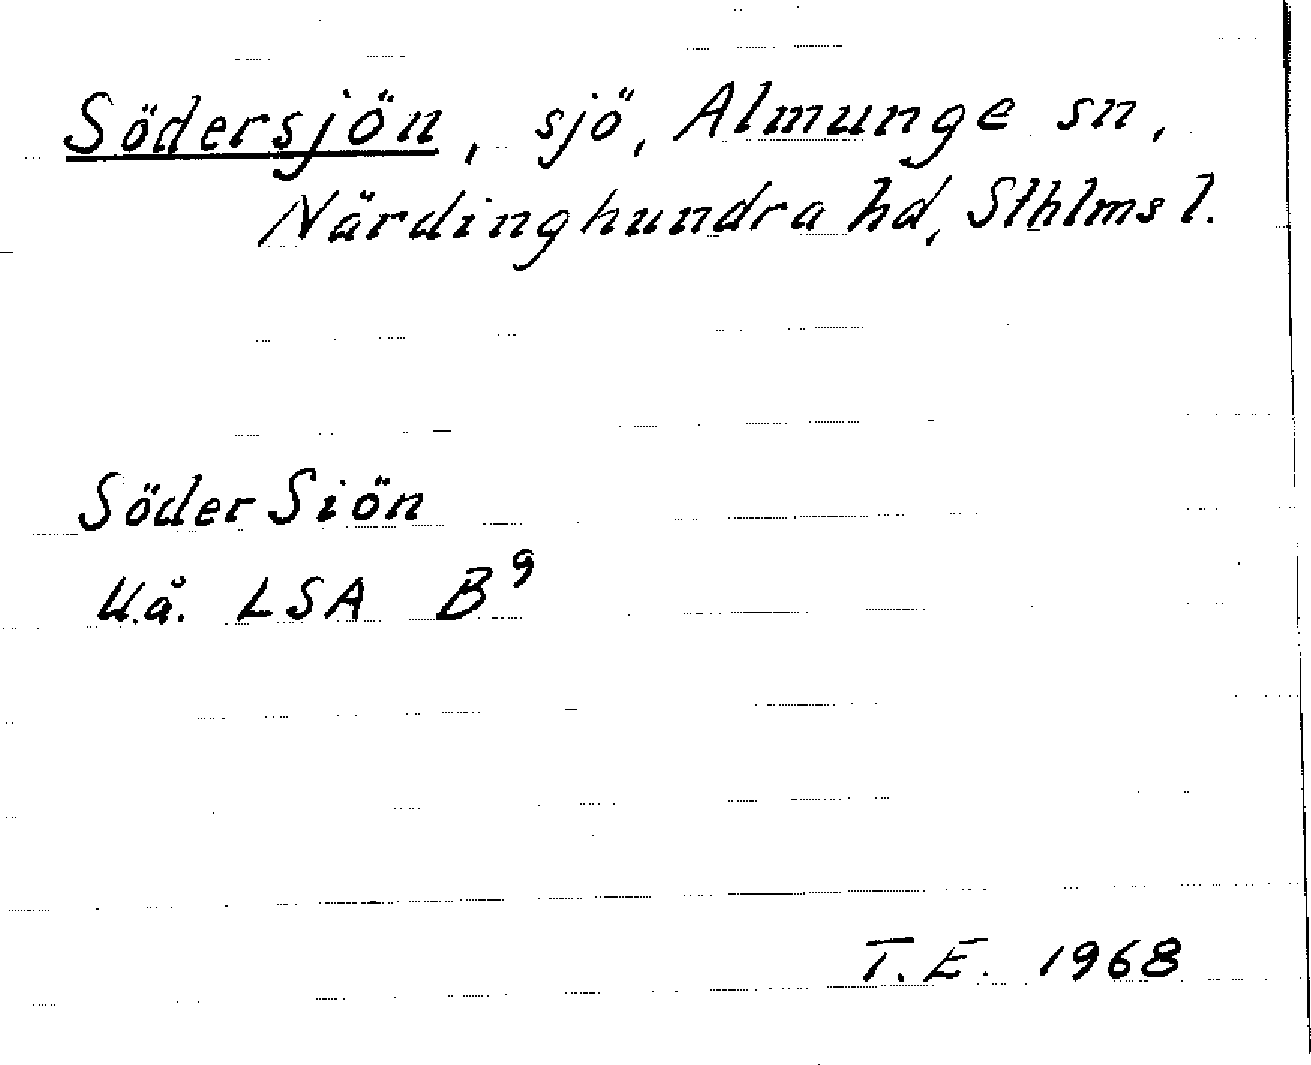 Södersjön, sjö, Almunge sn,
Närdinghundra hd, Sthlms l.
Söder Siön
U.å. LSA B⁹
T.E. 1968